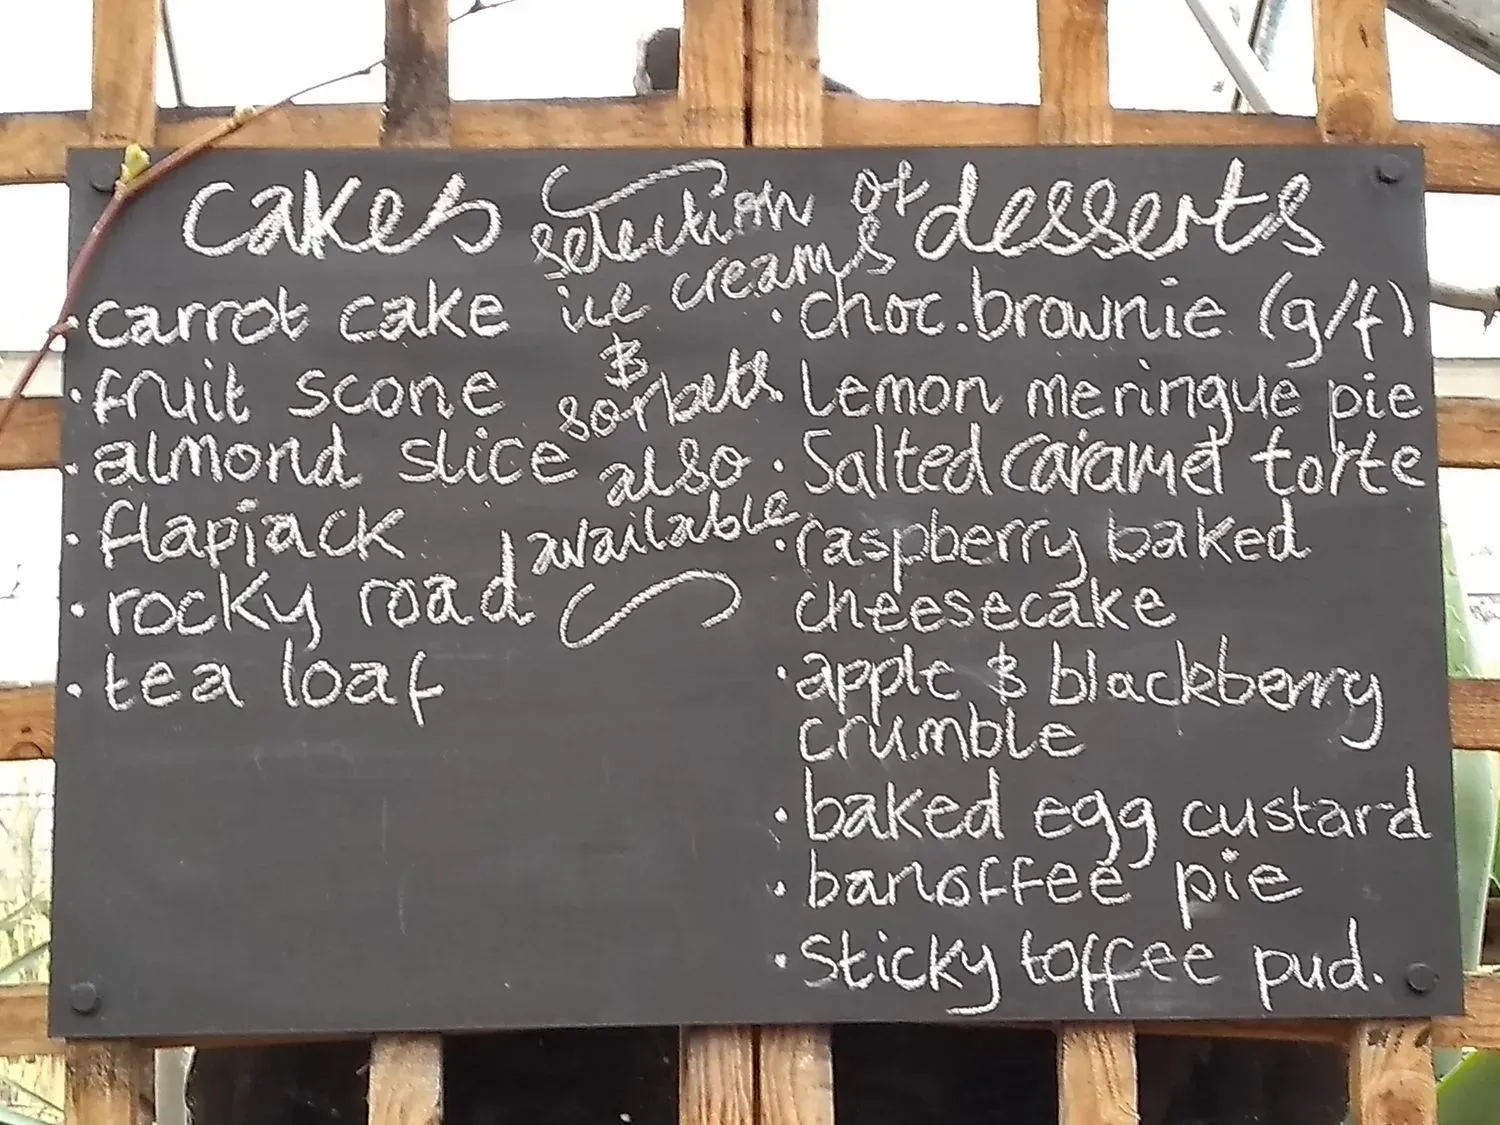 cakes
• carrot cake
• fruit scone
• almond slice
• flapjack
• rocky road
• tea loaf
selection of
ice creams
&
sorbets
also
available
desserts
• choc. brownie (g/f)
• Lemon meringue pie
• Salted caramel torte
• raspberry baked
cheesecake
• apple & blackberry
crumble
• baked egg custard
• banoffee pie
• Sticky toffee pud.